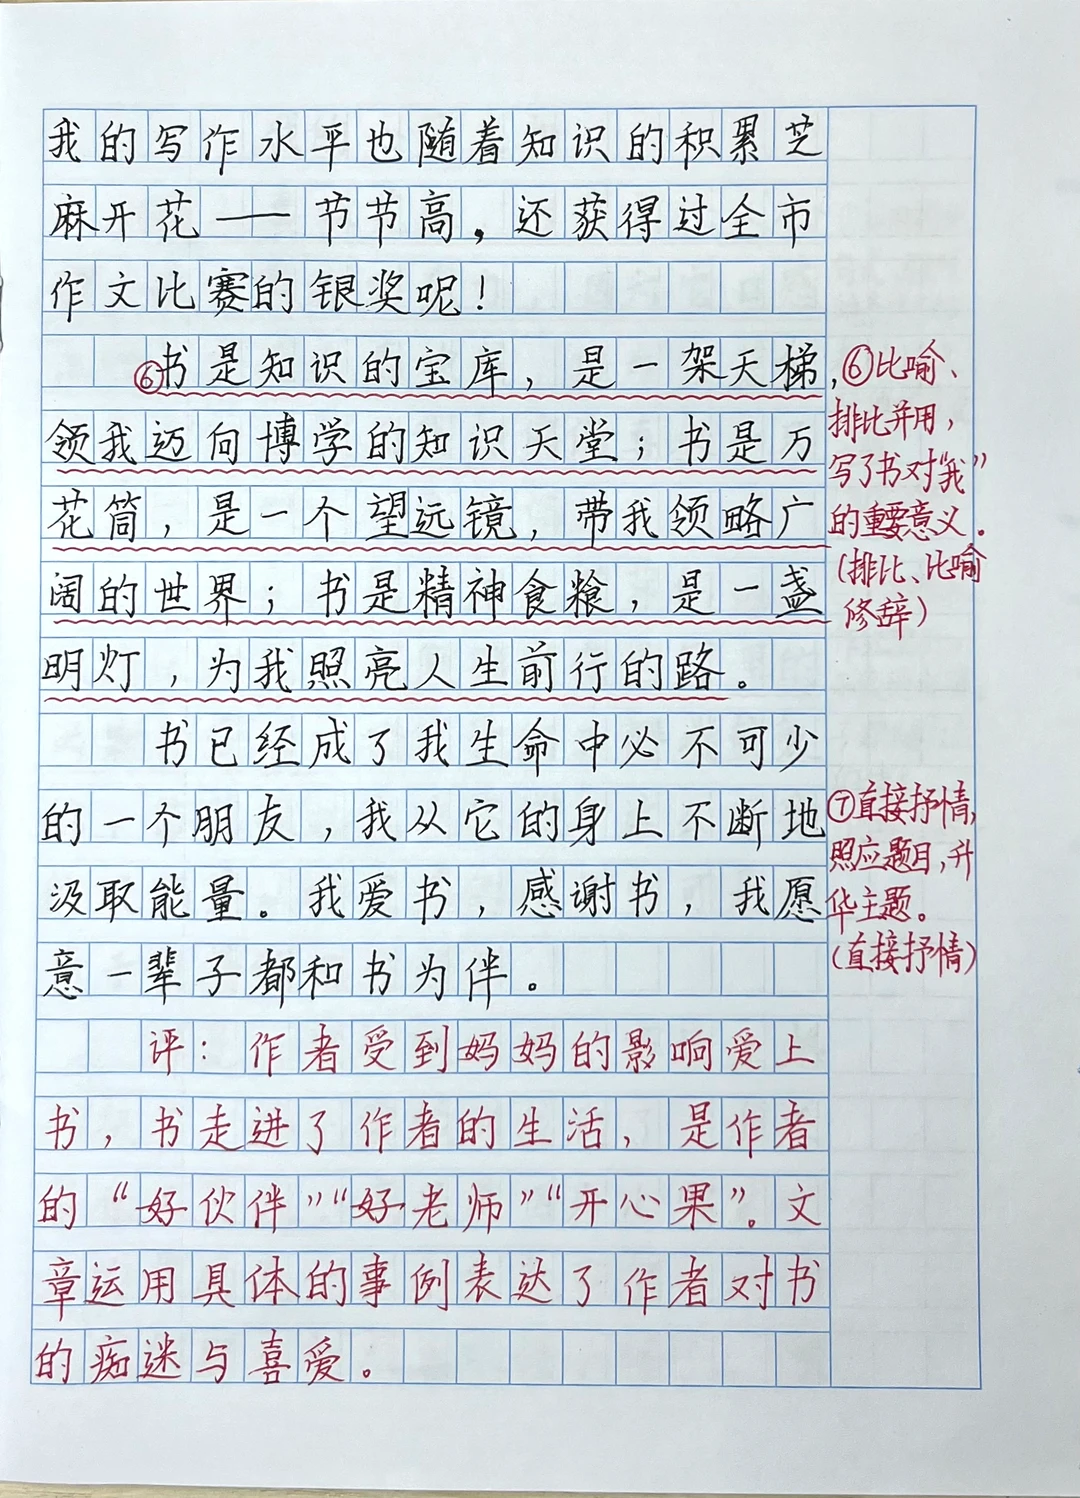 我的写作水平也随着知识的积累芝
麻开花——节节高，还获得过全市
作文比赛的银奖呢！
⑥书是知识的宝库，是一架天梯，
领我迈向博学的知识天堂；书是万
花筒，是一个望远镜，带我领略广
阔的世界；书是精神食粮，是一盏
明灯，为我照亮人生前行的路。
书已经成了我生命中必不可少
的一个朋友，我从它的身上不断地
汲取能量。我爱书，感谢书，我愿
意一辈子都和书为伴。
评：作者受到妈妈的影响爱上
书，书走进了作者的生活，是作者
的“好伙伴”“好老师”“开心果”。文
章运用具体的事例表达了作者对书
的痴迷与喜爱。
⑥比喻、
排比并用，
写了书对“我”
的重要意义。
（排比、比喻
修辞）
⑦直接抒情，
照应题目，升
华主题。
（直接抒情）